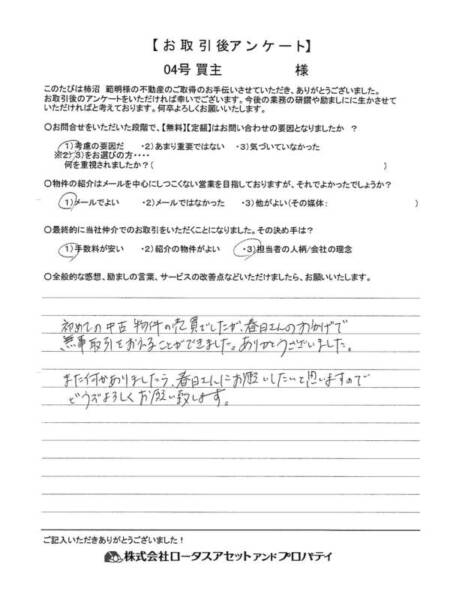 【お取引後アンケート】
04号 買主 様
このたびは柿沼 範明様の不動産のご取得のお手伝いさせていただき、ありがとうございました。
お取引後のアンケートをいただければ幸いでございます。今後の業務の研鑽や励ましにに生かさせて
いただければと考えております。何卒よろしくお願いいたします。
〇お問合せをいただいた段階で、【無料】【定額】はお問い合わせの要因となりましたか ?
・1)考慮の要因だ ・2)あまり重要ではない ・3)気づいていなかった
※2)・3)をお選びの方・・・・
何を重視されましたか?( )
〇物件の紹介はメールを中心にしつこくない営業を目指しておりますが、それでよかったでしょうか?
・1)メールでよい ・2)メールではなかった ・3)他がよい(その媒体: )
〇最終的に当社仲介でのお取引をいただくことになりました。その決め手は?
・1)手数料が安い ・2)紹介の物件がよい ・3)担当者の人柄/会社の理念
〇全般的な感想、励ましの言葉、サービスの改善点などいただけましたら、お願いいたします。
初めての中古物件の売買でしたが、春日さんのおかげで
無事取引をおえることができました。ありがとうございました。
また何かありましたら、春日さんにお願いしたいと思いますので
どうぞよろしくお願い致します。
ご記入いただきありがとうございました!
株式会社ロータスアセットアンドプロパティ